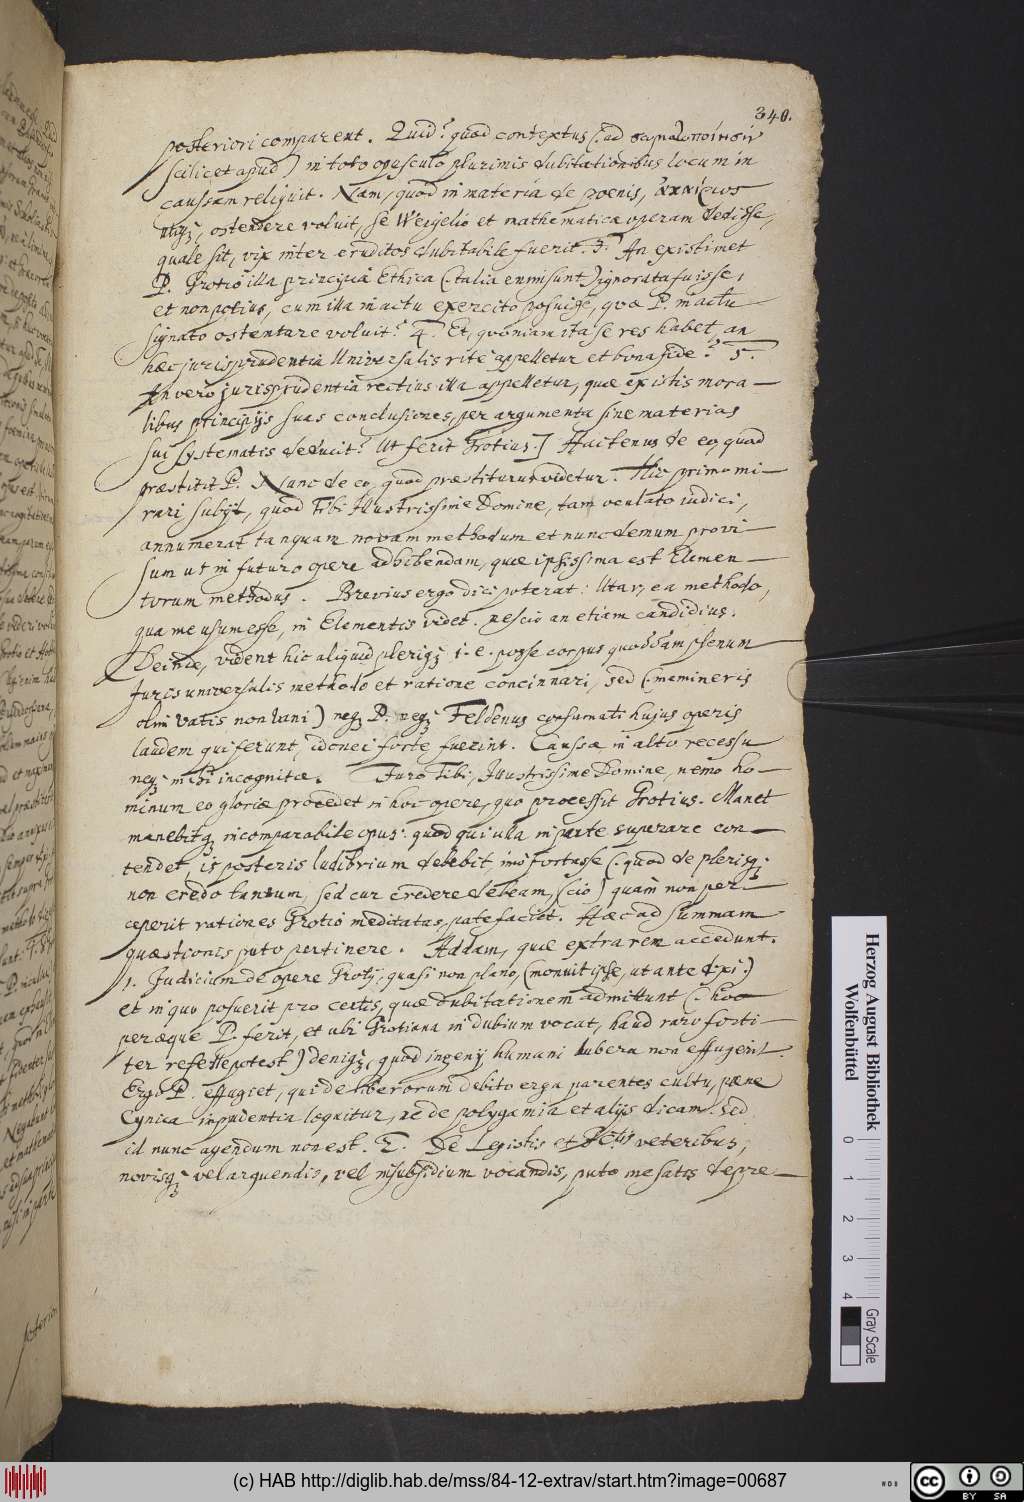 340.
posteriori comparent. Quid? quod contextus (: ad
scilicet apud) in toto opusculo plurimis dubitationibus locum in
caussam reliquit. Nam, quod in materia de poenis,
utiq;, ostendere voluit, se Weigelio et mathematicae operam dedisse,
quale sit, vix inter eruditos dubitabile fuerit. 3. An existimet
P. Grotio illa principia Ethica (: talia enim sunt) ignorata fuisse,
et non potius, cum illa in actu exercito posuisse, quae P. in actu
signato ostentare voluit? 4. Et, quoniam ita se res habet, an
haec jurisprudentia Universalis rite appelletur et bona fide? 5.
An vero jurisprudentia rectius illa appelletur, quae ex istis mora-
libus principijs suas conclusiones, per argumenta sine materias
sui systematis deducit? Ut fecit Grotius.] Hactenus de eo, quod
praestitit P. Nunc de eo, quod praestiturus videtur. Hic primo mi-
rari subijt, quod Tibi Illustrissime Domine, tam oculato iudici,
annumerat tanquam novam methodum et nunc demum provi-
sum ut in futuro opere adhibendam, quae ipsissima est Elemen-
torum methodus. Brevius ergo dici poterat: Utar, ea methodo,
qua me usum esse, in Elementis videt. nescio an etiam candidius.
Deinde, vident hic aliquid pleriq; i. e. posse corpus quoddam plenum
Juris universalis methodo et ratione concinnari, sed (: memineris
olim vatis non vani) neq; P. neq; Feldenus consumati hujus operis
laudem qui ferunt, idonei forte fuerint. Caussae in alto recessu
neq; mihi incognitae. Juro Tibi, Illustrissime Domine, nemo ho-
minum eo gloriae procedet in hoc opere, quo processit Grotius. Manet
manebitq; incomparabile opus: quod qui ulla in parte superare con-
tendet, is posteris ludibrium debebit, imo fortasse (: quod de plerisq;
non credo tantum, sed cur credere debeam, scio) quam non per-
ceperit rationes Grotio meditatas, patefaciet. Haec ad summam
quaestionis puto pertinere. Addam, quae extra rem accedunt.
1. Judicium de opere Grotij, quasi non plano, (monuit ipse, ut ante dixi:)
et in quo posuerit pro certis, quae dubitationem admittunt (: hoc
peraeque P. fecit, et ubi Grotiana in dubium vocat, haud raro forti-
ter refelle potest) deniq;, quod ingenij humani ubera non effugerit.
Ergo P. effugiet, qui de liberorum debito erga parentes cultu, paene
Cynica impudentia loquitur, ne de polygamia et alijs dicam. sed
id nunc agendum non est. 2. De Legistis et JCtis veteribus,
novisq; vel arguendis, vel in subsidium vocandis, puto me satis depre-
posterior
Herzog August Bibliothek
Wolfenbüttel
0 1 2 3 4
Gray Scale
(c) HAB http://diglib.hab.de/mss/84-12-extrav/start.htm?image=00687
cc BY SA